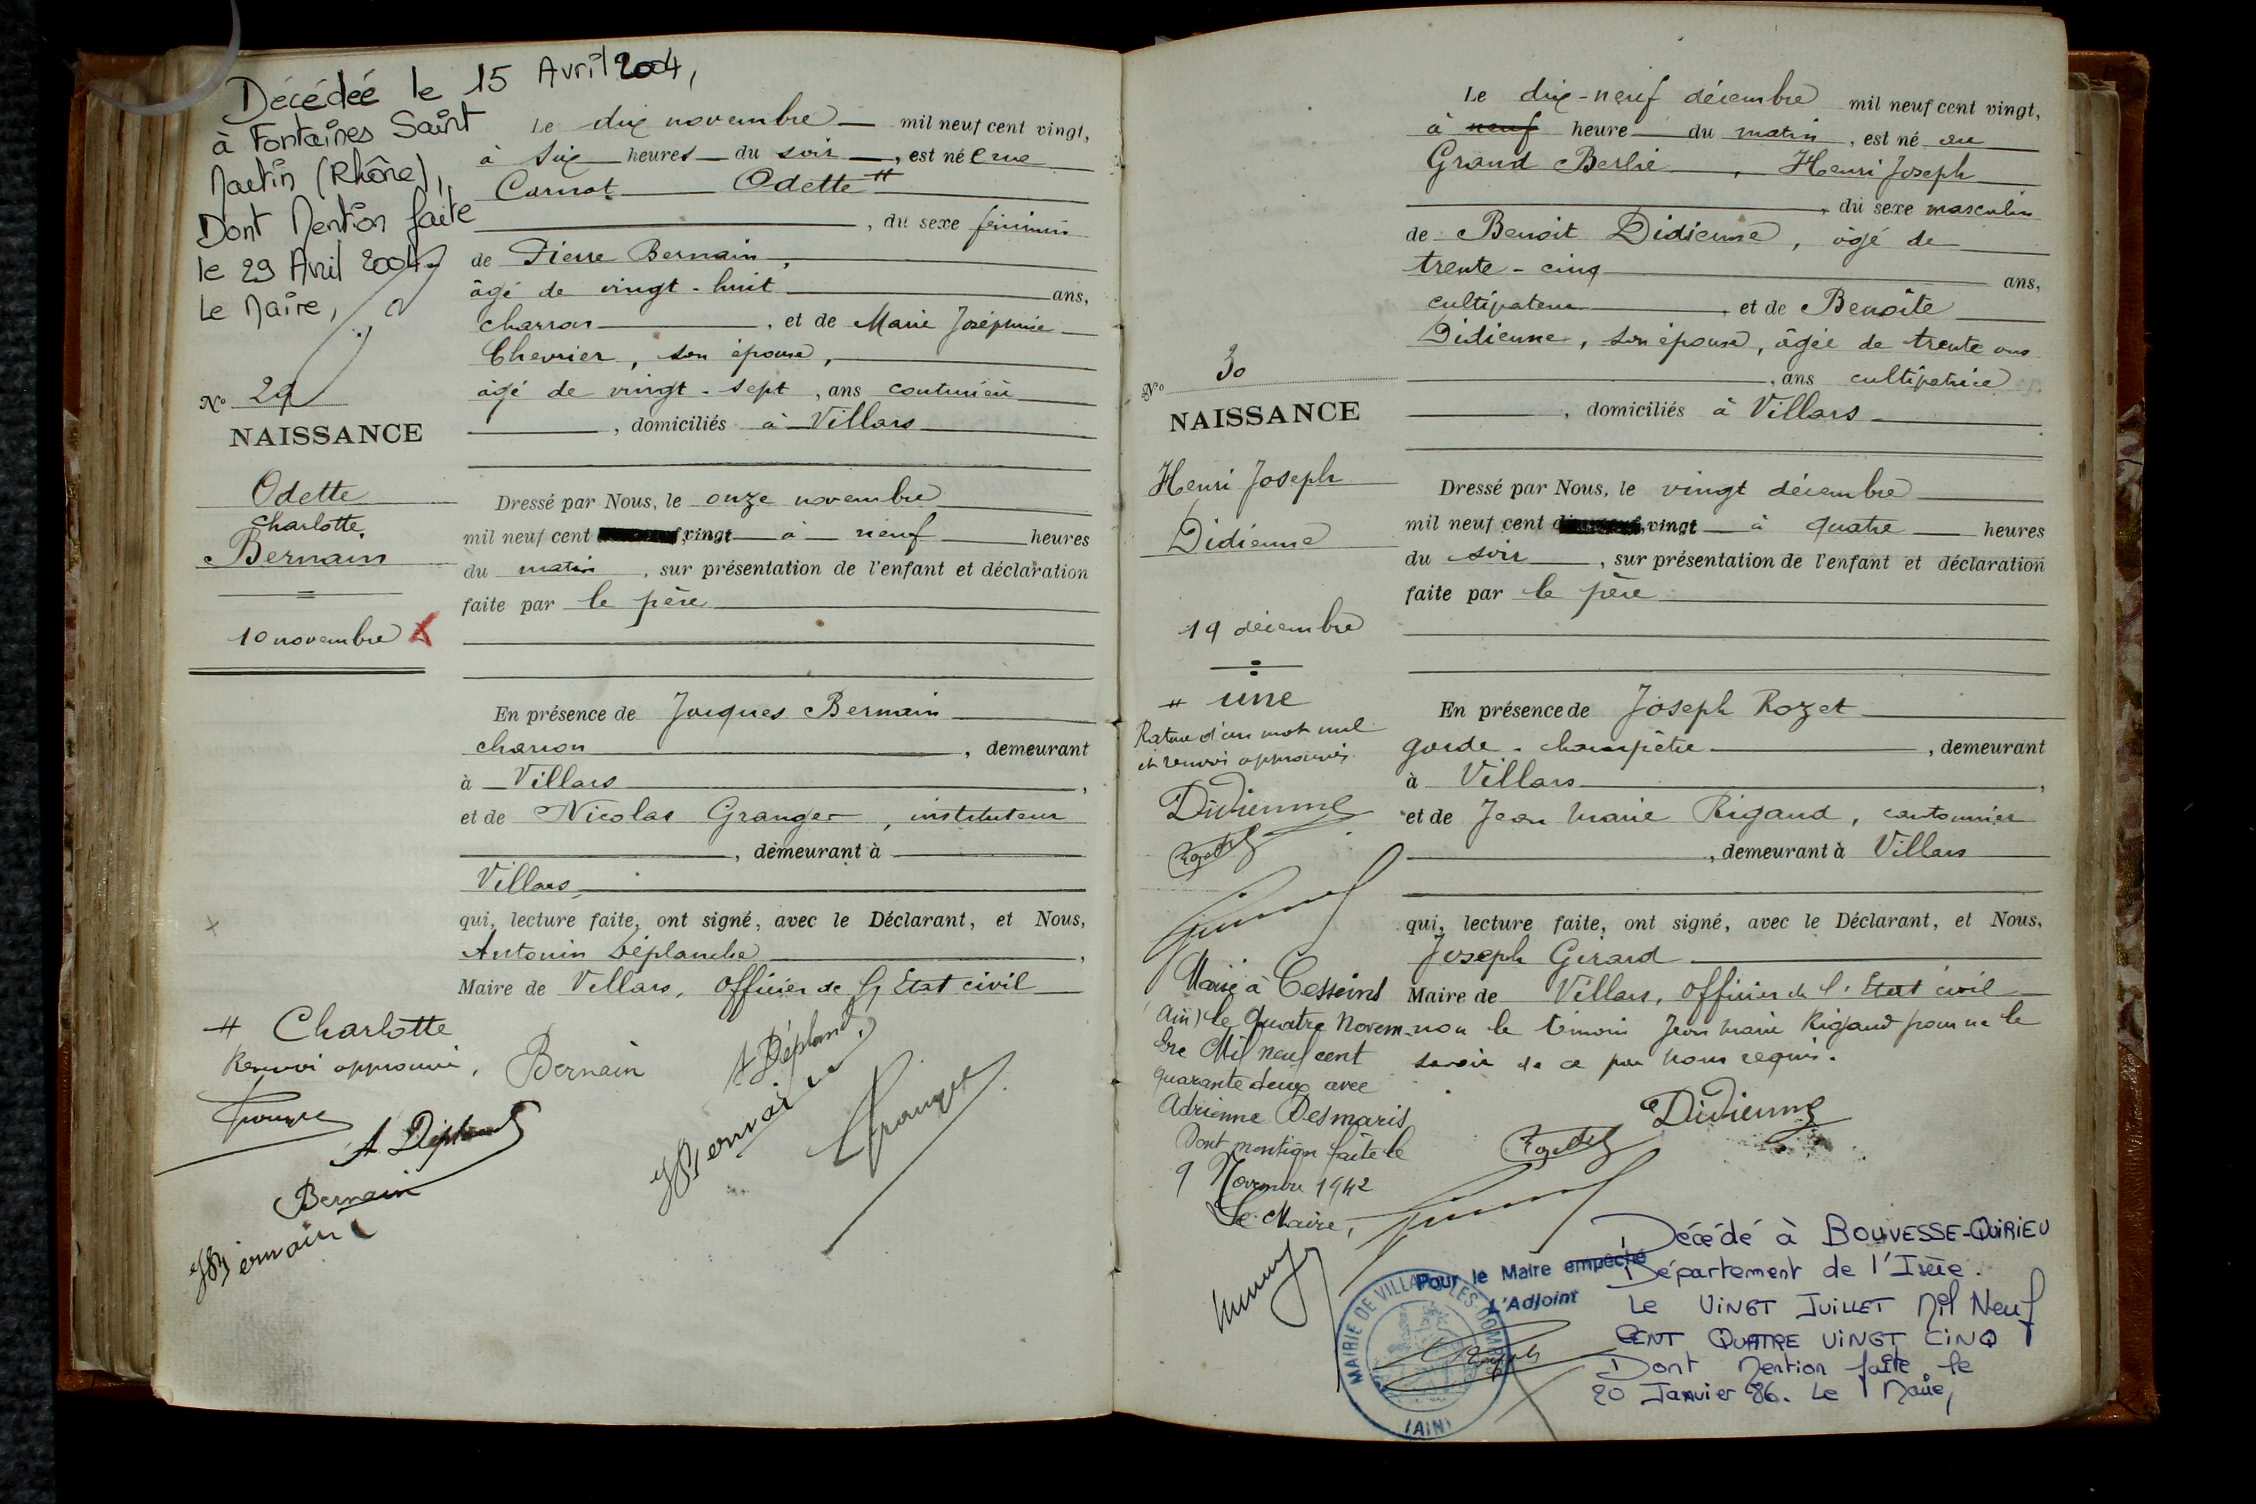 Décédée le 15 Avril 2004,
à Fontaines Saint
Martin (Rhône),
Dont Mention faite
le 29 Avril 2004
Le Maire,
No 29
NAISSANCE
Odette
Charlotte
Bernain
10 novembre
Le dix novembre mil neuf cent vingt,
à six heures du soir, est née rue
Carnot Odette #
, du sexe féminin
de Pierre Bernain,
âgé de vingt-huit ans,
charron, et de Marie Joséphine
Chevrier, son épouse,
âgé de vingt-sept, ans couturière
, domiciliés à Villars
Dressé par Nous, le onze novembre
mil neuf cent vingt à neuf heures
du matin, sur présentation de l'enfant et déclaration
faite par le père
En présence de Jacques Bernain
charron, demeurant
à Villars,
et de Nicolas Granger, instituteur
, demeurant à
Villars
qui, lecture faite, ont signé, avec le Déclarant, et Nous,
Antonin Déplanche,
Maire de Villars, officier de l'Etat civil
# Charlotte
Renvoi approuvé,
Bernain
A Déplanche
JBernain
Granger
A Déplanche
Bernain
JBernain
No 30
NAISSANCE
Henri Joseph
Didienne
19 décembre
# une
Rature d'un mot nul
et renvoi approuvés
Didienne
Rozet
Marié à Cesseins
(Ain) le quatre Novem-
bre Mil neuf cent
quarante deux avec
Adrienne Desmaris
Dont mention faite le
9 Novembre 1942
Le Maire,
Le dix-neuf décembre mil neuf cent vingt,
à neuf heure du matin, est né au
Grand Berlie, Henri Joseph
, du sexe masculin
de Benoit Didienne, âgé de
trente-cinq ans,
cultivateur, et de Benoîte
Didienne, son épouse, âgée de trente ans
, ans cultivatrice
, domiciliés à Villars
Dressé par Nous, le vingt décembre
mil neuf cent vingt à quatre heures
du soir, sur présentation de l'enfant et déclaration
faite par le père
En présence de Joseph Rozet
garde-champêtre, demeurant
à Villars,
et de Jean Marie Rigaud, cantonnier
, demeurant à Villars
qui, lecture faite, ont signé, avec le Déclarant, et Nous,
Joseph Girard
Maire de Villars, officier de l'Etat civil
non le témoin Jean Marie Rigaud pour ne le
savoir de ce par nous requis.
Didienne
Rozet
Pour le Maire empêché
L'Adjoint
MAIRIE DE VILLARS-LES-DOMBES
(AIN)
Décédé à BOUVESSE-QUIRIEU
Département de l'Isère.
Le VINGT JUILLET Mil Neuf
CENT QUATRE VINGT CINQ
Dont Mention faite le
20 Janvier 86. Le Maire,